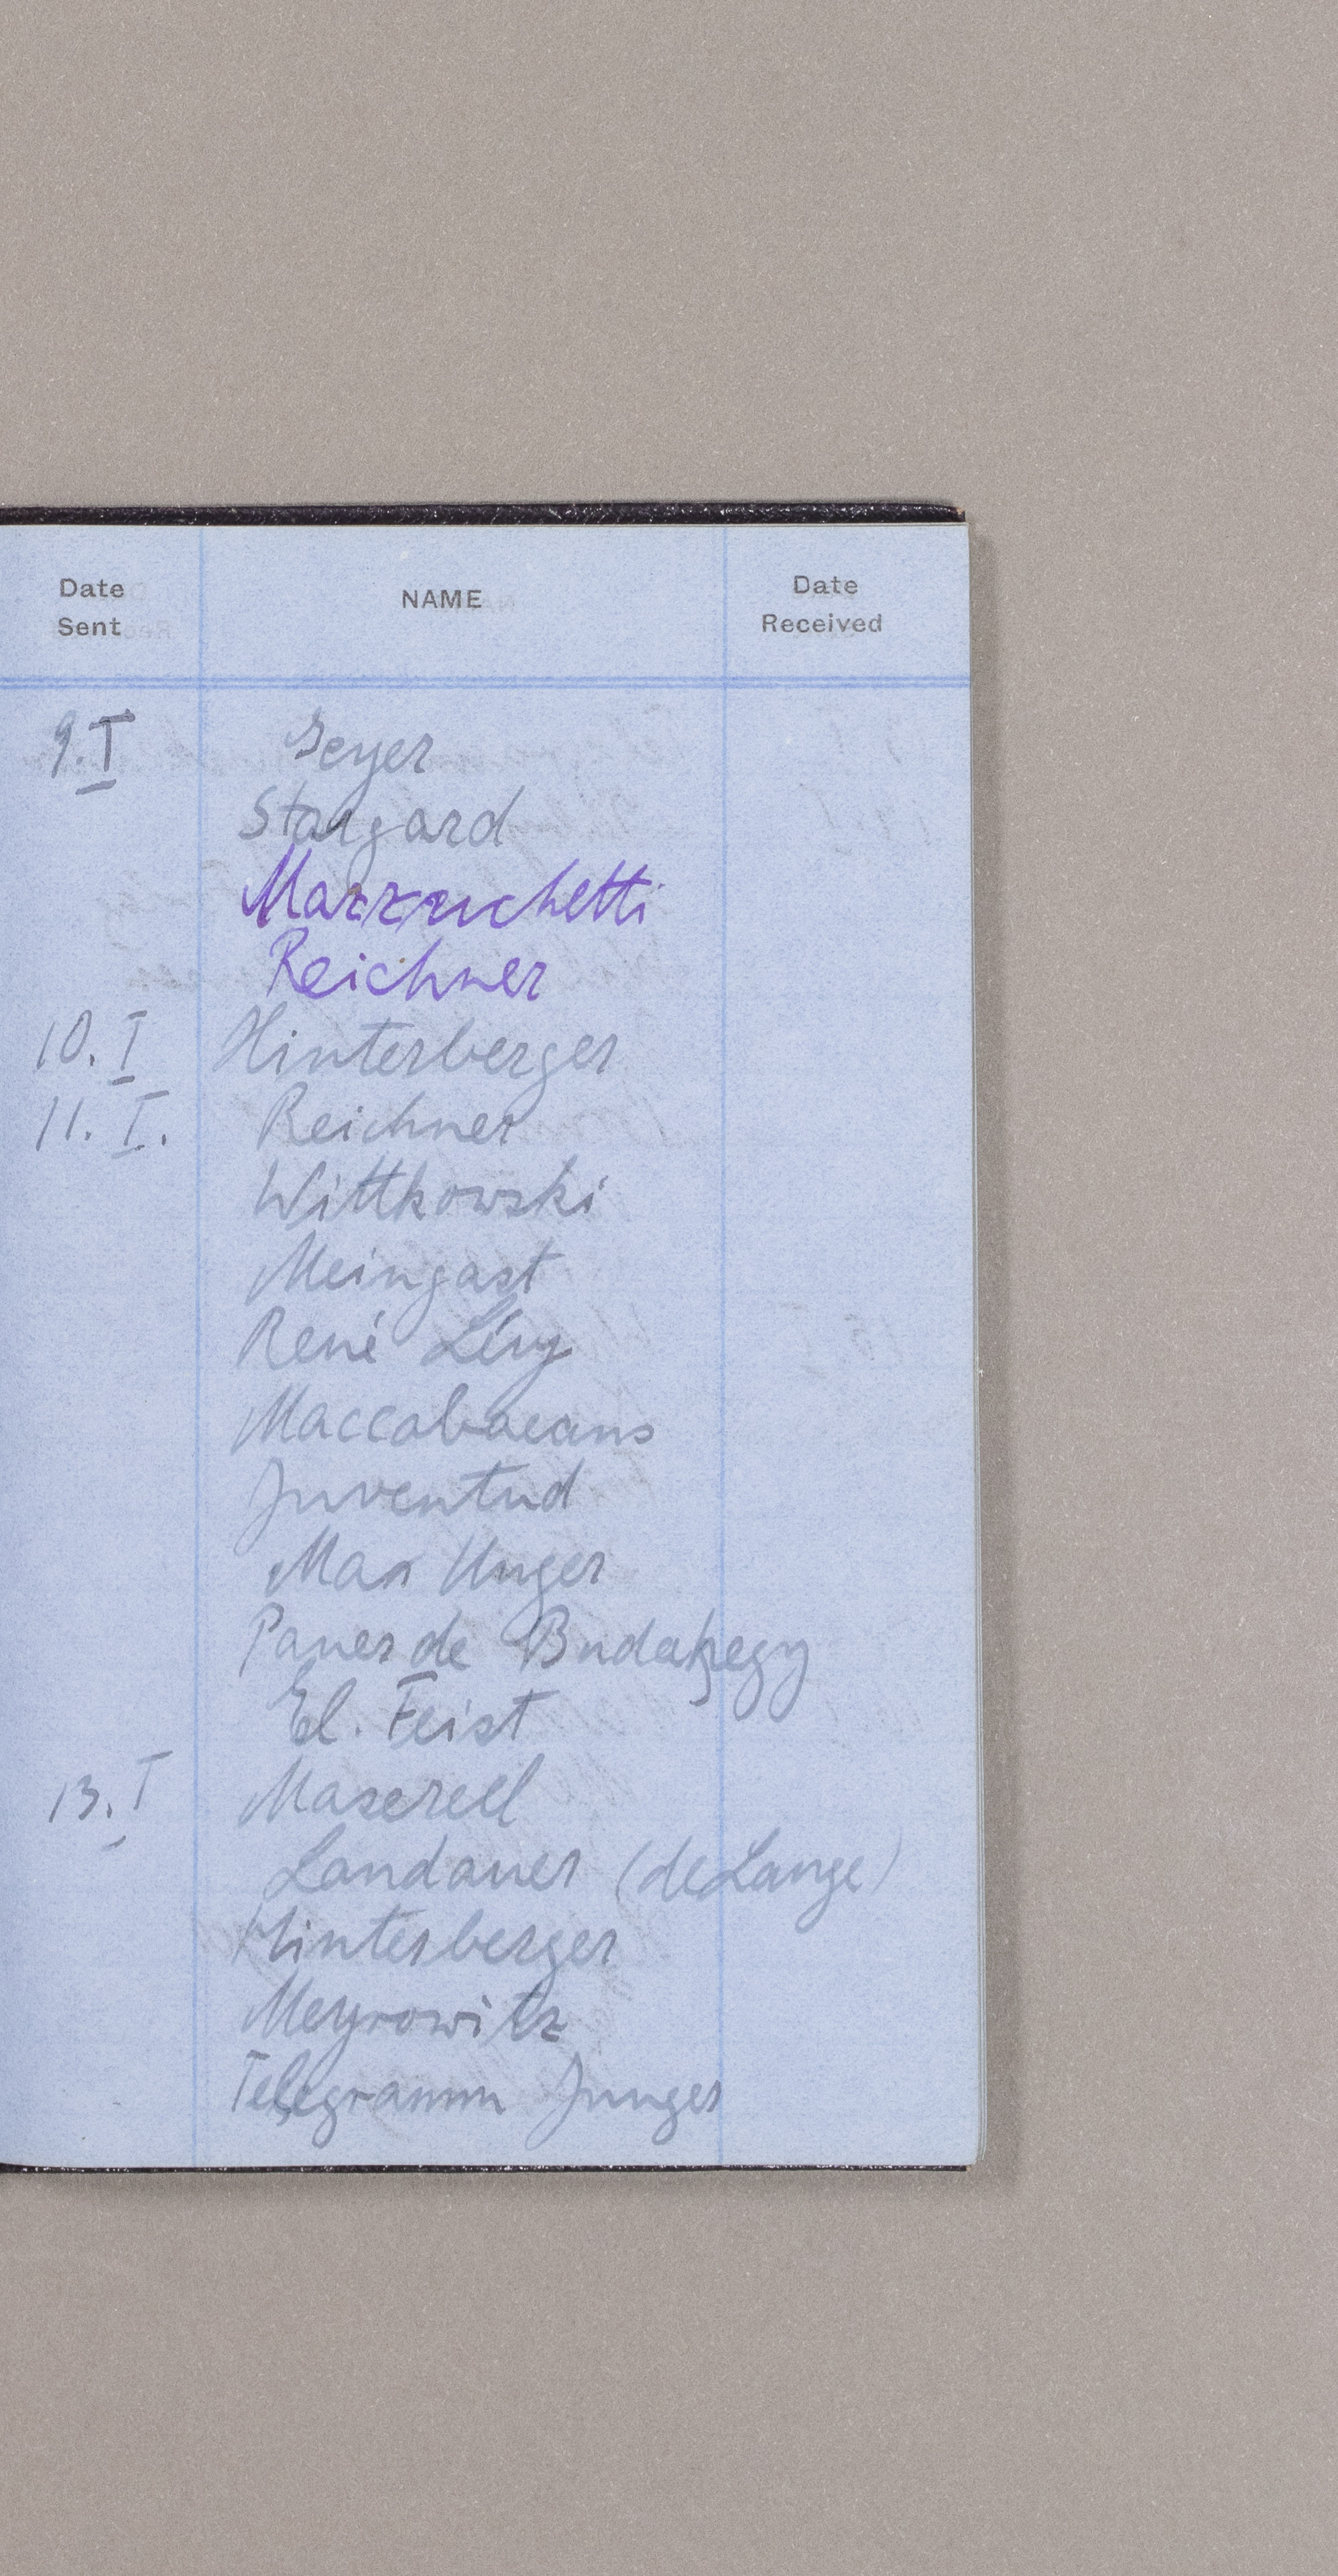 Date Sent NAME Date Received
9. I Geyer
Stargard
Mazzuchetti
Reichner
10. I Hinterberger
11. I. Reichner
Wittkowski
Meingast
René Lévy
Maccabaeans
Juventud
Max Unger
Pauer de
El. Feist
13. I Masereel
Landauer (de Lange)
Hinterberger
Meyrowitz
Telegramm Junges